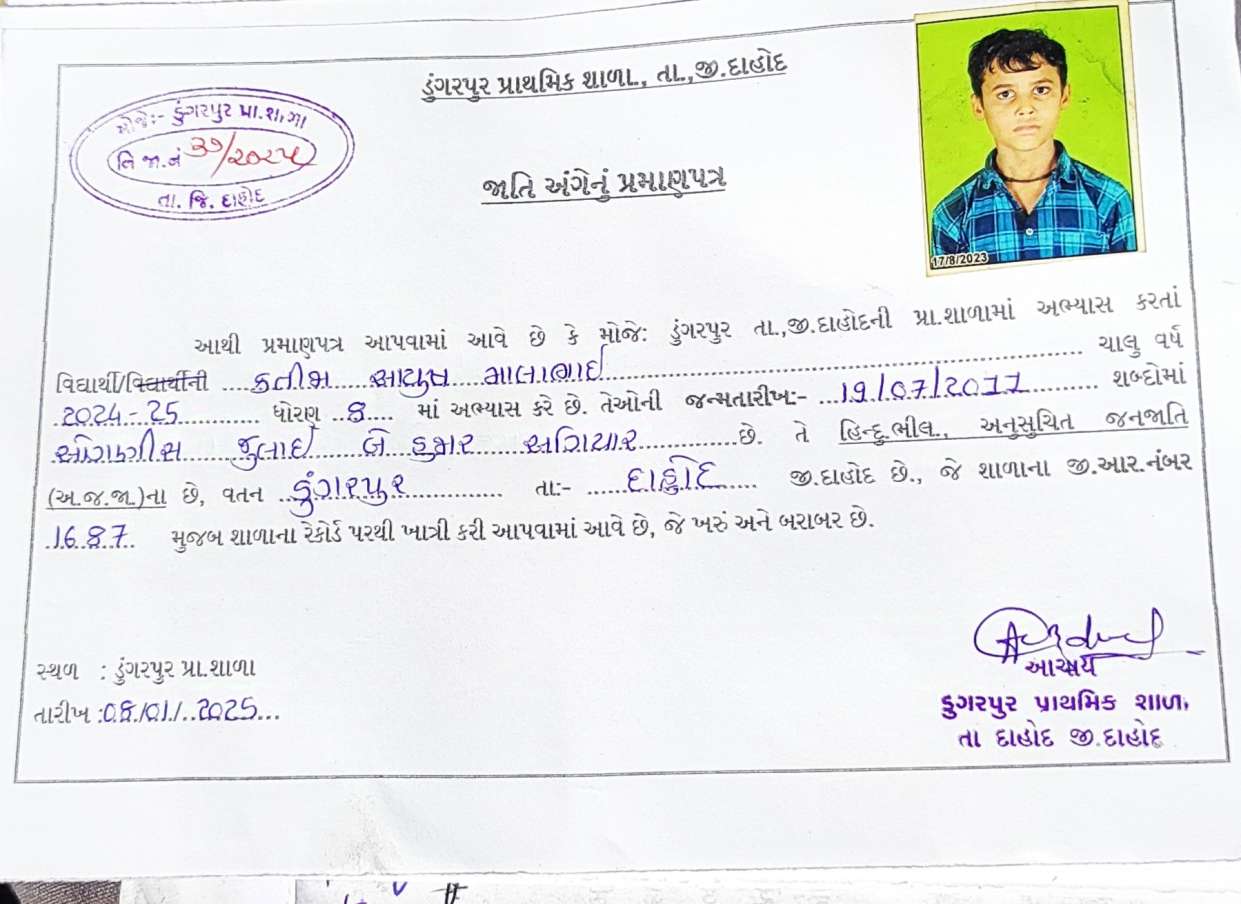 ડુંગરપુર પ્રાથમિક શાળા., તા.,જી.દાહોદ
મોજે:- ડુંગરપુર પ્રા.શાળા
નિ જા.નં ૩૭/૨૦૨૫
તા. જિ. દાહોદ
જાતિ અંગેનું પ્રમાણપત્ર
17/8/2023
આથી પ્રમાણપત્ર આપવામાં આવે છે કે મોજે: ડુંગરપુર તા.,જી.દાહોદની પ્રા.શાળામાં અભ્યાસ કરતાં
વિદ્યાર્થી/વિદ્યાર્થીની ....કતીજા આયુષ માલાભાઈ.... ચાલુ વર્ષ
2024-25 ધોરણ ..8.... માં અભ્યાસ કરે છે. તેઓની જન્મતારીખ:- ...19/07/2011.... શબ્દોમાં
ઓગણીસ જુલાઈ બે હજાર અગિયાર છે. તે હિન્દુ ભીલ., અનુસુચિત જનજાતિ
(અ.જ.જા.)ના છે, વતન ..ડુંગરપુર.... તા:- ....દાહોદ.... જી.દાહોદ છે., જે શાળાના જી.આર.નંબર
..1687.. મુજબ શાળાના રેકોર્ડ પરથી ખાત્રી કરી આપવામાં આવે છે, જે ખરું અને બરાબર છે.
સ્થળ : ડુંગરપુર પ્રા.શાળા
તારીખ :08/01/..2025...
આચાર્ય
ડુગરપુર પ્રાથમિક શાળા,
તા દાહોદ જી.દાહોદ